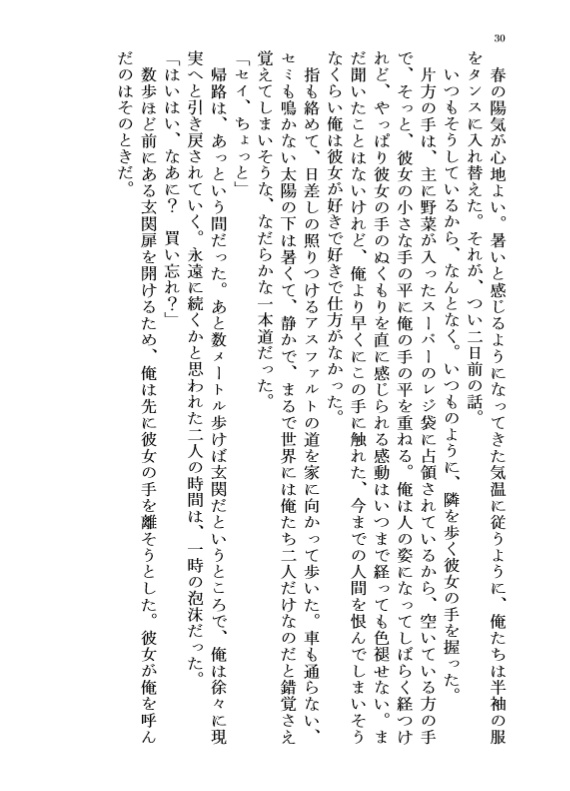 30
　春の陽気が心地よい。暑いと感じるようになってきた気温に従うように、俺たちは半袖の服
をタンスに入れ替えた。それが、つい二日前の話。
　いつもそうしているから、なんとなく。いつものように、隣を歩く彼女の手を握った。
　片方の手は、主に野菜が入ったスーパーのレジ袋に占領されているから、空いている方の手
で、そっと、彼女の小さな手の平に俺の手の平を重ねる。俺は人の姿になってしばらく経つけ
れど、やっぱり彼女の手のぬくもりを直に感じられる感動はいつまで経っても色褪せない。ま
だ聞いたことはないけれど、俺より早くにこの手に触れた、今までの人間を恨んでしまいそう
なくらい俺は彼女が好きで好きで仕方がなかった。
　指も絡めて、日差しの照りつけるアスファルトの道を家に向かって歩いた。車も通らない、
セミも鳴かない太陽の下は暑くて、静かで、まるで世界には俺たち二人だけなのだと錯覚さえ
覚えてしまいそうな、なだらかな一本道だった。
「セイ、ちょっと」
　帰路は、あっという間だった。あと数メートル歩けば玄関だというところで、俺は徐々に現
実へと引き戻されていく。永遠に続くかと思われた二人の時間は、一時の泡沫だった。
「はいはい、なあに？　買い忘れ？」
　数歩ほど前にある玄関扉を開けるため、俺は先に彼女の手を離そうとした。彼女が俺を呼ん
だのはそのときだ。